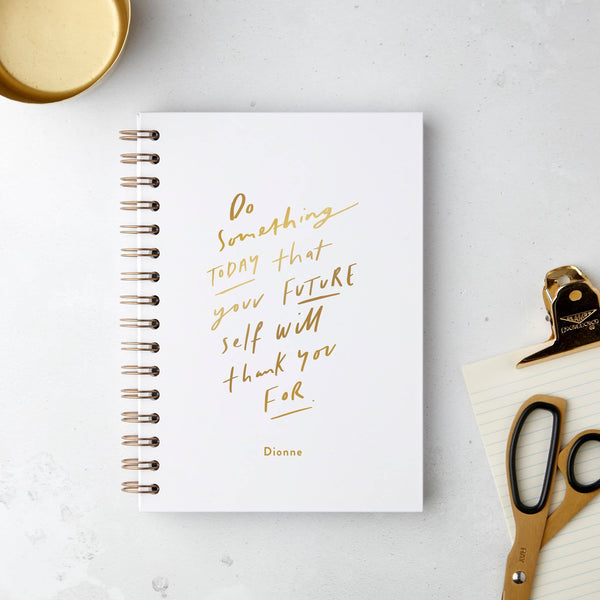 Do
something
TODAY that
your FUTURE
self will
thank you
FOR.
Dionne